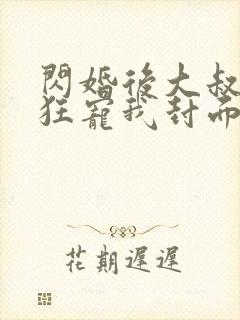 閃婚後大叔
狂寵我封而
花期遲遲